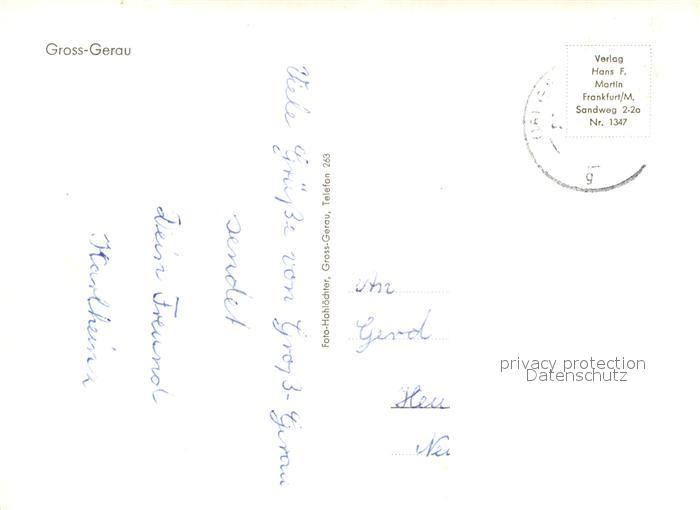 Gross-Gerau
Verlag
Hans F.
Martin
Frankfurt/M,
Sandweg 2-2a
Nr. 1347
Viele Grüße von Groß-Gerau
sendet
Dein Freund
Karlheinz
Foto-Hohlöchter, Gross-Gerau, Telefon 263
An
Gerd
privacy protection
Datenschutz